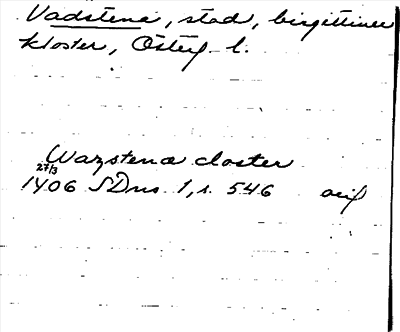 Vadstena, stad, birgittiner
kloster, Östg l.
Wazstena closter
27/3
1406 SDns 1, s. 546 orig